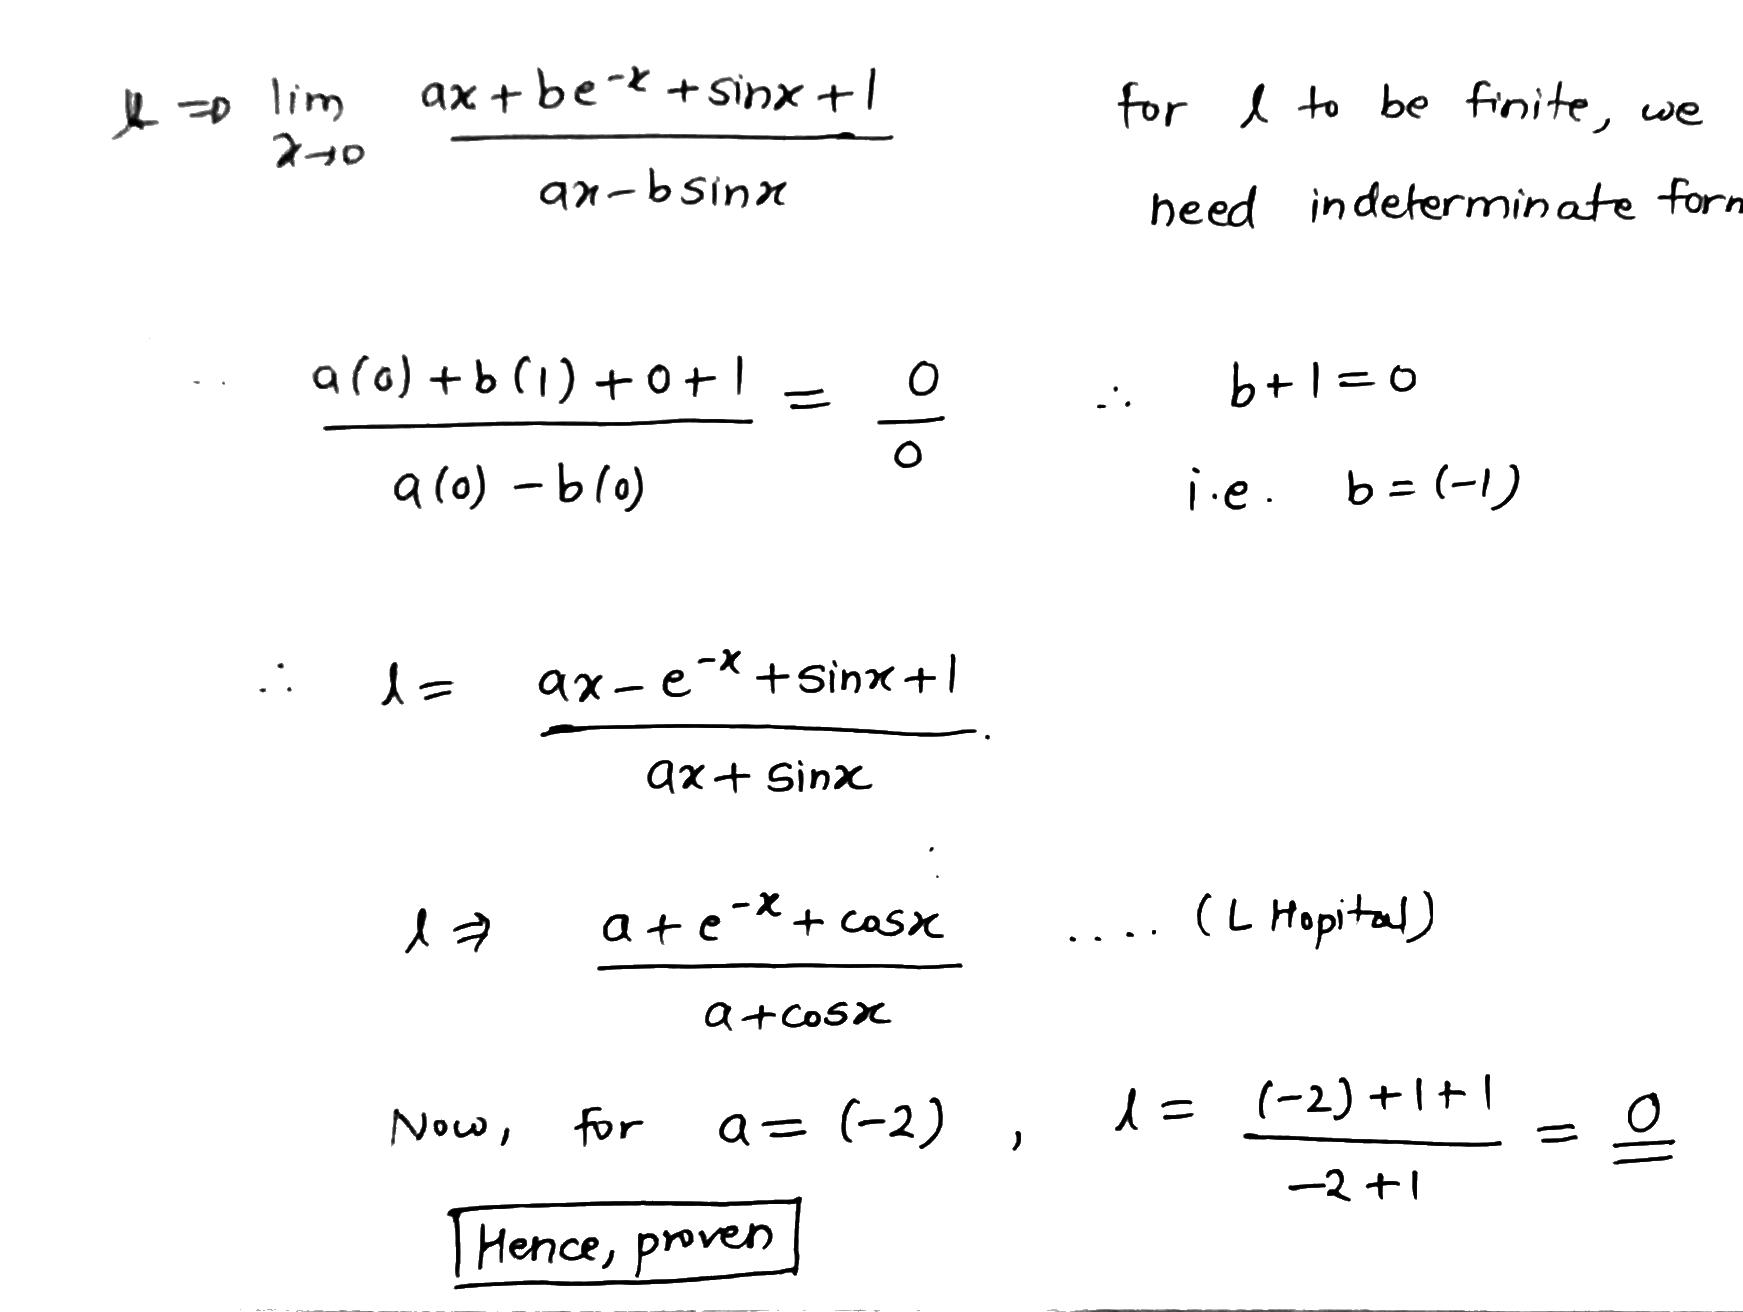 l ⇒ lim x→0 (ax + be^-x + sinx + 1) / (ax - b sinx)
for l to be finite, we
need indeterminate form
(a(0) + b(1) + 0 + 1) / (a(0) - b(0)) = 0/0 ∴ b + 1 = 0
i.e. b = (-1)
∴ l = (ax - e^-x + sinx + 1) / (ax + sinx)
l ⇒ (a + e^-x + cosx) / (a + cosx) .... (L Hopital)
Now, for a = (-2) , l = ((-2) + 1 + 1) / (-2 + 1) = 0
Hence, proven